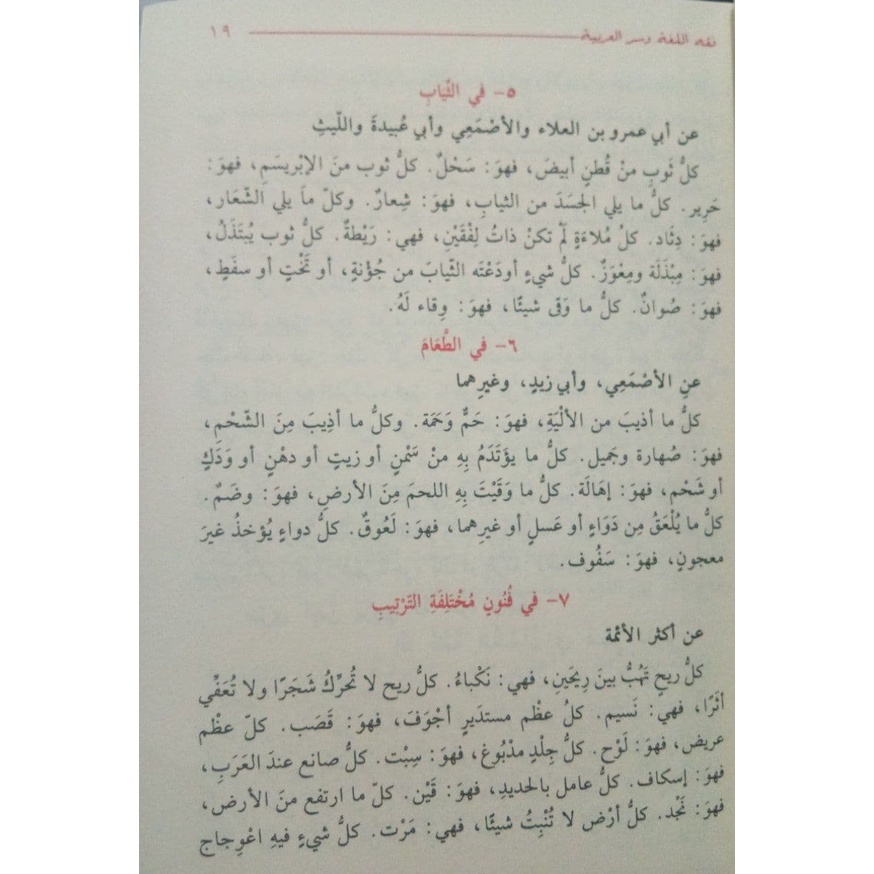 فقه اللغة وسر العربية ١٩
٥- في الثِّيَابِ
عن أبي عمرو بن العلاء والأصْمَعِي وأبي عُبيدةَ واللّيثِ
كلُّ ثَوبٍ منْ قُطنٍ أبيضَ، فهوَ: سَحْلٌ. كلُّ ثوب منَ الإبْريسَمِ، فهوَ:
حَرِير. كلُّ ما يلي الجسَدَ من الثيابِ، فهوَ: شِعارٌ. وكلّ ماَ يلي الشّعَار،
فهوَ: دِثَاد. كلُّ مُلاءَةٍ لَمْ تكنْ ذاتُ لِفْقَيْنِ، فهي: رَيْطةٌ. كلُّ ثوب يُبْتَذَلُ،
فهوَ: مِبْذَلَة ومِعْوَزٌ. كلُّ شيءٍ أودَعْتَه الثّيابَ من جُؤْنةٍ، أو تَخْتٍ أو سفَطٍ،
فهوَ: صُوانٌ. كلُّ ما وَقى شيئًا، فهوَ: وِقاء لَهُ.
٦- في الطَّعَامَ
عنِ الأصْمَعِي، وأبي زيدٍ، وغيرِهما
كلُّ ما أذيبَ من الألْيَةِ، فهوَ: حَمٌّ وَحَمَة. وكلُّ ما أذِيبَ مِنَ الشّحْمِ،
فهوَ: صُهارة وجَميل. كلُّ ما يؤتَدَمُ بِهِ منْ سَمْنٍ أو زيتٍ أو دهْنٍ أو وَدَكٍ
أو شَحْمٍ، فهوَ: إهَالَة. كلُّ ما وَقَيْتَ بِهِ اللحمَ مِنَ الأرضِ، فهوَ: وضَمٌ.
كلُّ ما يُلْعَقُ مِن دَوَاءٍ أو عَسلٍ أو غيرِهما، فهوَ: لَعُوقٌ. كلُّ دواءٍ يُؤخذُ غيرَ
معجونٍ، فهوَ: سَفُوف.
٧- في فُنُونٍ مُخْتَلِفَةِ التَرْتِيبِ
عن أكثر الأئمة
كلُّ ريحٍ تَهُبُّ بينَ رِيحَينِ، فهي: نَكْباءُ. كلُّ ريح لا تُحرِّكُ شَجَرًا ولا تُعَفِّي
أثَرًا، فهي: نَسيم. كلُّ عظْم مستدَيرٍ أجْوَفَ، فهوَ: قَصَب. كلّ عظْم
عريض، فهوَ: لَوْح. كلُّ جِلْدٍ مدْبُوغ، فهوَ: سِبْت. كلُّ صانع عندَ العَرَبِ،
فهوَ: إسكاف. كلُّ عامل بالحديدِ، فهوَ: قَيْن. كلّ ما ارتفع منَ الأرض،
فهوَ: نَجْد. كلُّ أرْض لا تُنْبِتُ شيئًا، فهي: مَرْت. كلُّ شيءٍ فيهِ اعْوِجاج